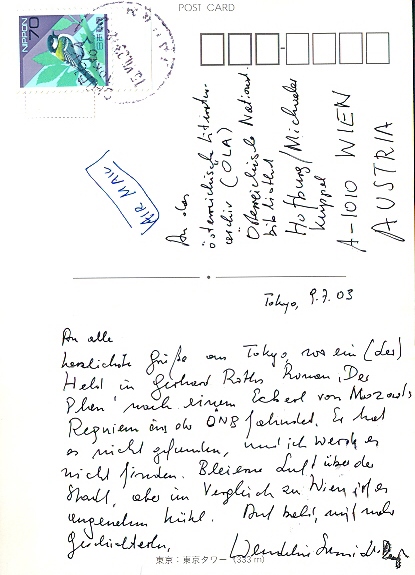 POST CARD
NIPPON 70
AIR MAIL
An das
österreichische Literatur-
archiv (ÖLA)
Österreichische National-
bibliothek
Hofburg/Michaeler
Kuppel
A-1010 WIEN
AUSTRIA
Tokyo, 9.7.03
An alle
herzlichste Grüße aus Tokyo, wo ein (der)
Held in Gerhard Roths Roman "Der
Plan" nach einem Eckerl von Mozarts
Requiem aus der ÖNB fahndet. Er hat
es nicht gefunden, und ich werde es
nicht finden. Bleierne Luft über der
Stadt, aber im Vergleich zu Wien ist es
angenehm kühl. Auf bald, mit mehr
Geschichterln,
Wendelin
東京：東京タワー (333m)